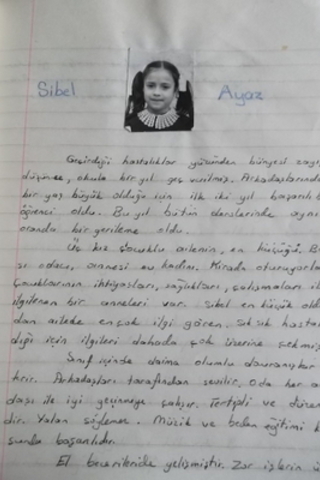 Sibel Ayaz
Geçirdiği hastalıklar yüzünden bünyesi zayıf
düşünce, okula bir yıl geç verilmiş. Arkadaşlarından
bir yaş büyük olduğu için ilk iki yıl başarılı b
öğrenci oldu. Bu yıl bütün derslerinde aynı
oranda bir gerileme oldu.
Üç kız çocuklu ailenin, en küçüğü. B
sı odacı, annesi ev kadını. Kirada oturuyorla
çocuklarının ihtiyaçları, sağlıkları, çalışmaları il
ilgilenen bir anneleri var. Sibel en küçük old
dan ailede en çok ilgi gören. Sık sık hasta
dığı için ilgileri dahada çok üzerine çekmiş
Sınıf içinde daima olumlu davranışlar
tir. Arkadaşları tarafından sevilir. O da her a
daşı ile iyi geçinmeye çalışır. Tertipli ve düzen
dir. Yalan söylemez. Müzik ve beden eğitimi k
sunda başarılıdır.
El becerileride gelişmiştir. Zor işlerin ü